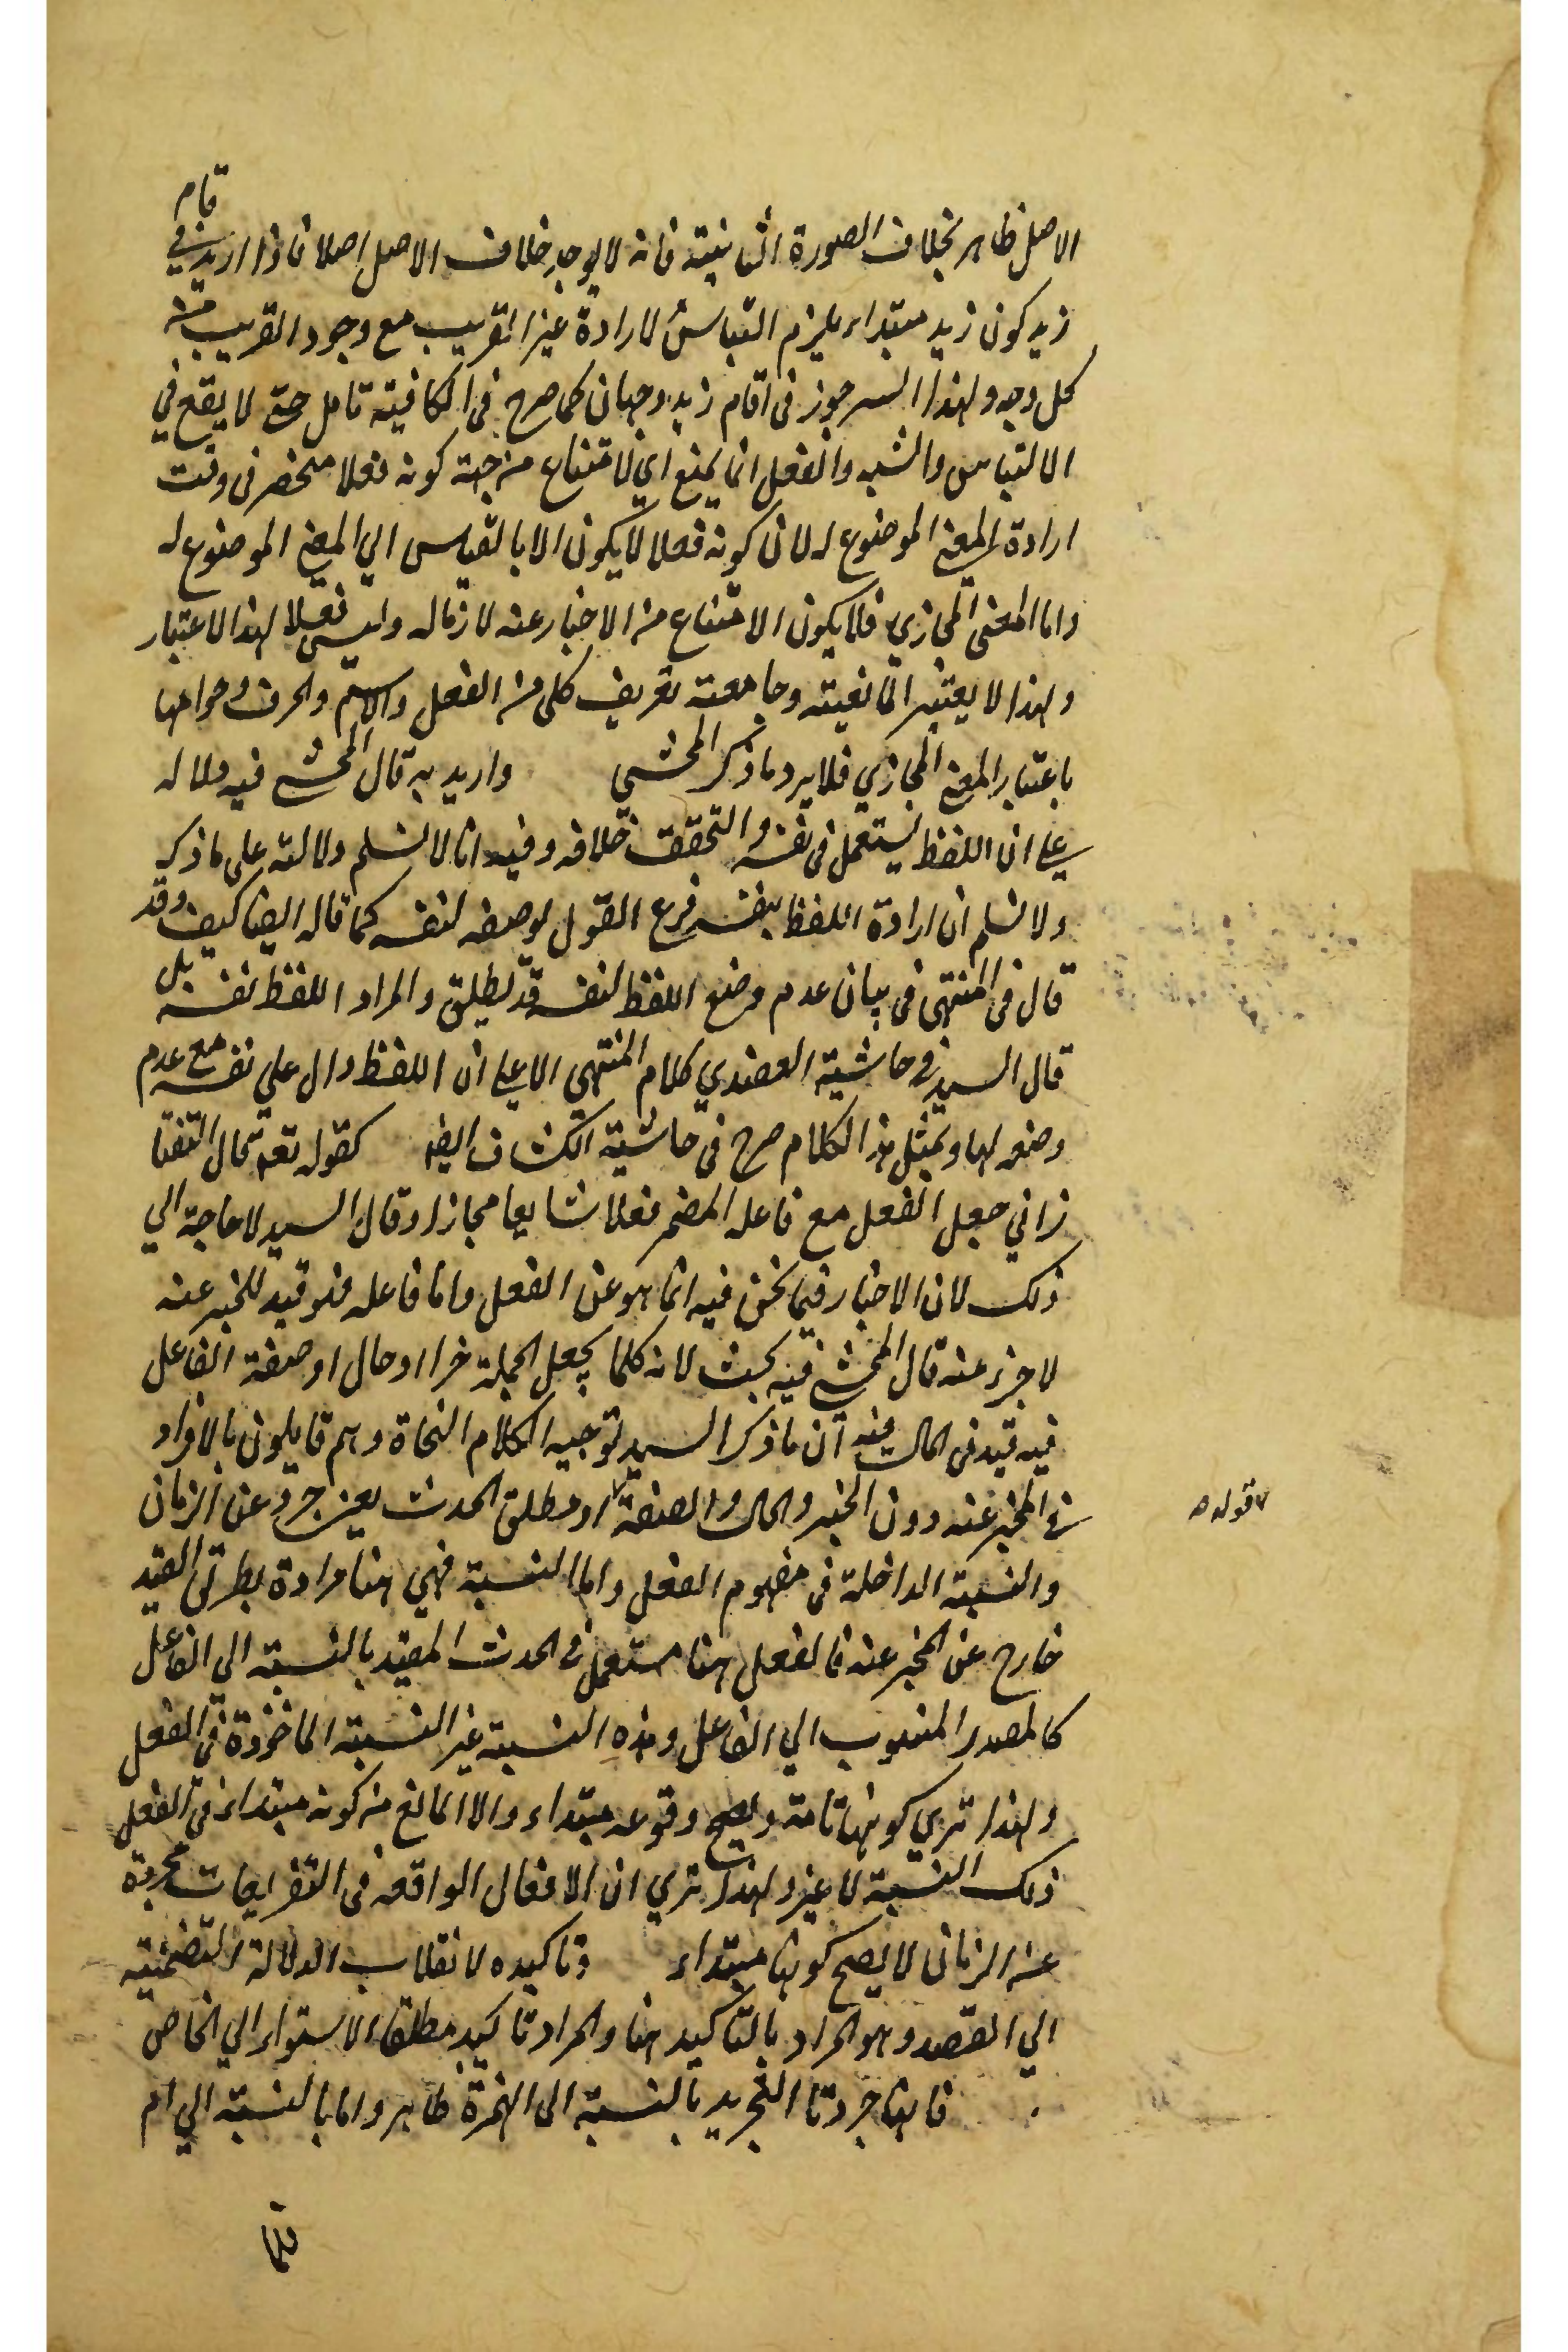 الاصل ظاهر بخلاف الصورة الثانية فانه لا يوجد خلاف الاصل اصلا فاذا اريد في قام
زيد كون زيد مبتداء يلزم التباس لارادة غير القريب مع وجود القريب من
كل وجه ولهذا السر جوز في اقام زيد وجهان كما صرح في الكافية تامل حتى لا يقع في
الالتباس والشبه والفعل انما يمنع اي لامتناع من جهة كونه فعلا منحصر في وقت
ارادة المعنى الموضوع له لان كونه فعلا لا يكون الا بالقياس الي المعنى الموضوع له
واما المعنى المجازي فلا يكون الامتناع من الاخبار عنه لازما له وليس فعلا لهذا الاعتبار
ولهذا لا يعتبر المانعية وجامعية تعريف كل من الفعل والاسم والحرف وخواصها
باعتبار المعنى المجازي فلا يرد ما ذكر المحشي واريد به قال المحشي فيه دلالة
علي ان اللفظ يستعمل في نفسه والتحقق خلافه وفيه انا لا نسلم دلالته على ما ذكر
ولا نسلم ان ارادة اللفظ بنفسه فرع القول بوضعه لنفسه كما قاله ايضا كيف وقد
قال في المنتهى في بيان عدم وضع اللفظ لنفسه قد يطلق والمراد اللفظ نفسه بل
قال السيد في حاشية العضدي كلام المنتهى الا علي ان اللفظ دال علي نفسه مع عدم
وضعه لها وبمثل هذا الكلام صرح في حاشية الكشاف ايضا كقوله تعه قال التفتا
زاني جعل الفعل مع فاعله المضمر فعلا شايعا مجازا وقال السيد لا حاجة الي
ذلك لان الاخبار فيما نحن فيه انما هو عن الفعل واما فاعله فهو قيد للخبر عنه
لا جزء عنه قال المحشي فيه بحث لانه كلما يجعل الجملة خبرا او حال او صفة الفاعل
فيه قيد في الحال عنه ان ما ذكر السيد توجيه الكلام النحاة وهم قايلون بالافراد
في المخبر عنه دون الخبر والحال والصفة او مطلق الحدث يعني جرد عن الزمان
والنسبة الداخلة في مفهوم الفعل واما النسبة فهي هنا مرادة بطريق القيد
خارج عن المخبر عنه فالفعل هنا مستعمل في الحدث المقيد بالنسبة الي الفاعل
كالمصدر المنسوب الي الفاعل وهذه النسبة غير النسبة الماخوذة في الفعل
ولهذا تري كونها تامة ويصح وقوعه مبتداء والا المانع من كونه مبتداء في الفعل
ذلك النسبة لا غير ولهذا تري ان الافعال الواقعه في التفريعات مجردة
عن الزمان لا يصح كونها مبتداء وتاكيده لانقلاب الدلالة التضمنية
الي القصد وهو المراد بالتاكيد هنا والمراد تاكيد مطلق الاستواء الي الخاص
فانها جردتا التجريد بالنسبة الى الهمزة ظاهر واما بالنسبة الي ام
قوله